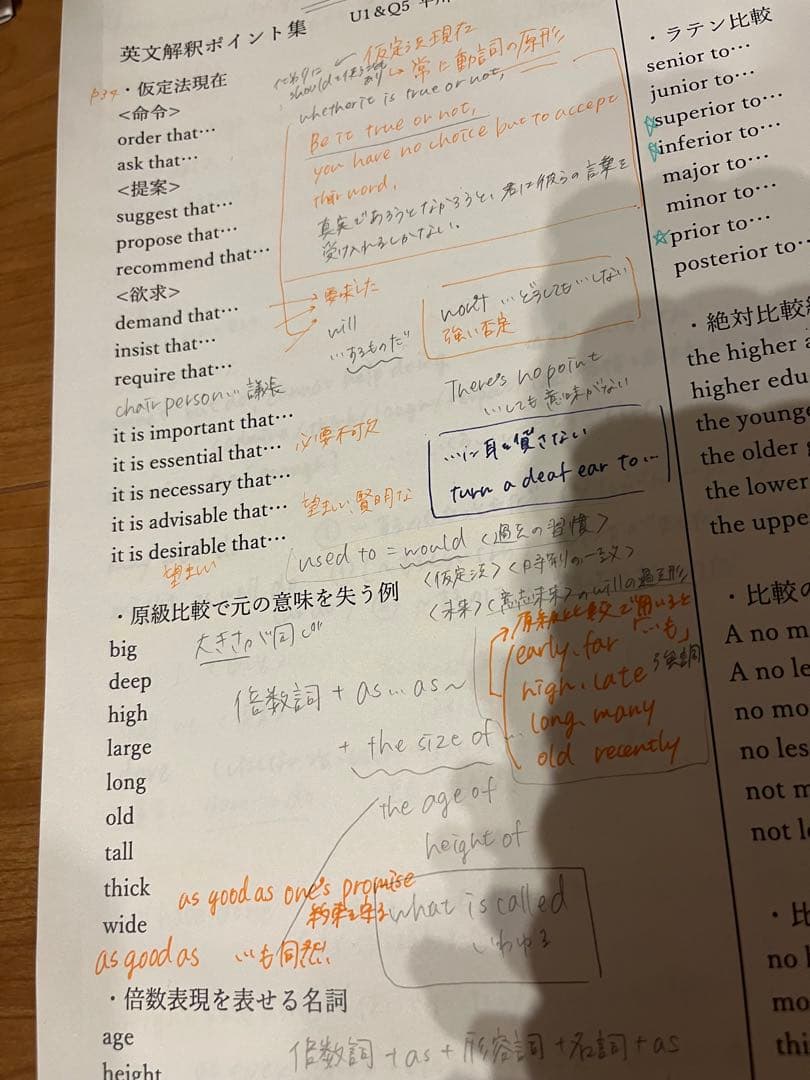 英文解釈ポイント集
U1&Q5
p34
・仮定法現在
仮定法現在
常に動詞の原形
<命令>
order that…
ask that…
<提案>
suggest that…
propose that…
recommend that…
<欲求>
demand that…
insist that…
require that…
chair person… 議長
it is important that…
it is essential that… 必要不可欠
it is necessary that…
it is advisable that… 望ましい、賢明な
it is desirable that…
望ましい
whether it is true or not,
Be it true or not,
you have no choice but to accept
their word.
真実であろうとなかろうと、君は彼らの言葉を
受け入れるしかない。
要求した
will
…するものだ
won't …どうしても…しない
強い否定
There's no point
…しても意味がない
…に耳を貸さない
turn a deaf ear to…
used to = would <過去の習慣>
<仮定法> <時制の一致>
<未来> <意志未来>のwillの過去形
・原級比較で元の意味を失う例
big 大きさが同じ
deep
high
large
long
old
tall
thick
wide
倍数詞 + as … as ~
+ the size of …
the age of
height of
原級比較で用いると
early、far 「…も」
high、late 強調
long、many
old recently
as good as one's promise
約束を守る
as good as …も同然
what is called
いわゆる
・倍数表現を表せる名詞
age
height
倍数詞 + as + 形容詞 + 名詞 + as
・ラテン比較
senior to…
junior to…
☆superior to…
☆inferior to…
major to…
minor to…
☆prior to…
posterior to…
・絶対比較
the higher
higher edu
the young
the older
the lower
the uppe
・比較の
A no m
A no le
no mo
no les
not m
not l
・比
no l
mo
thi